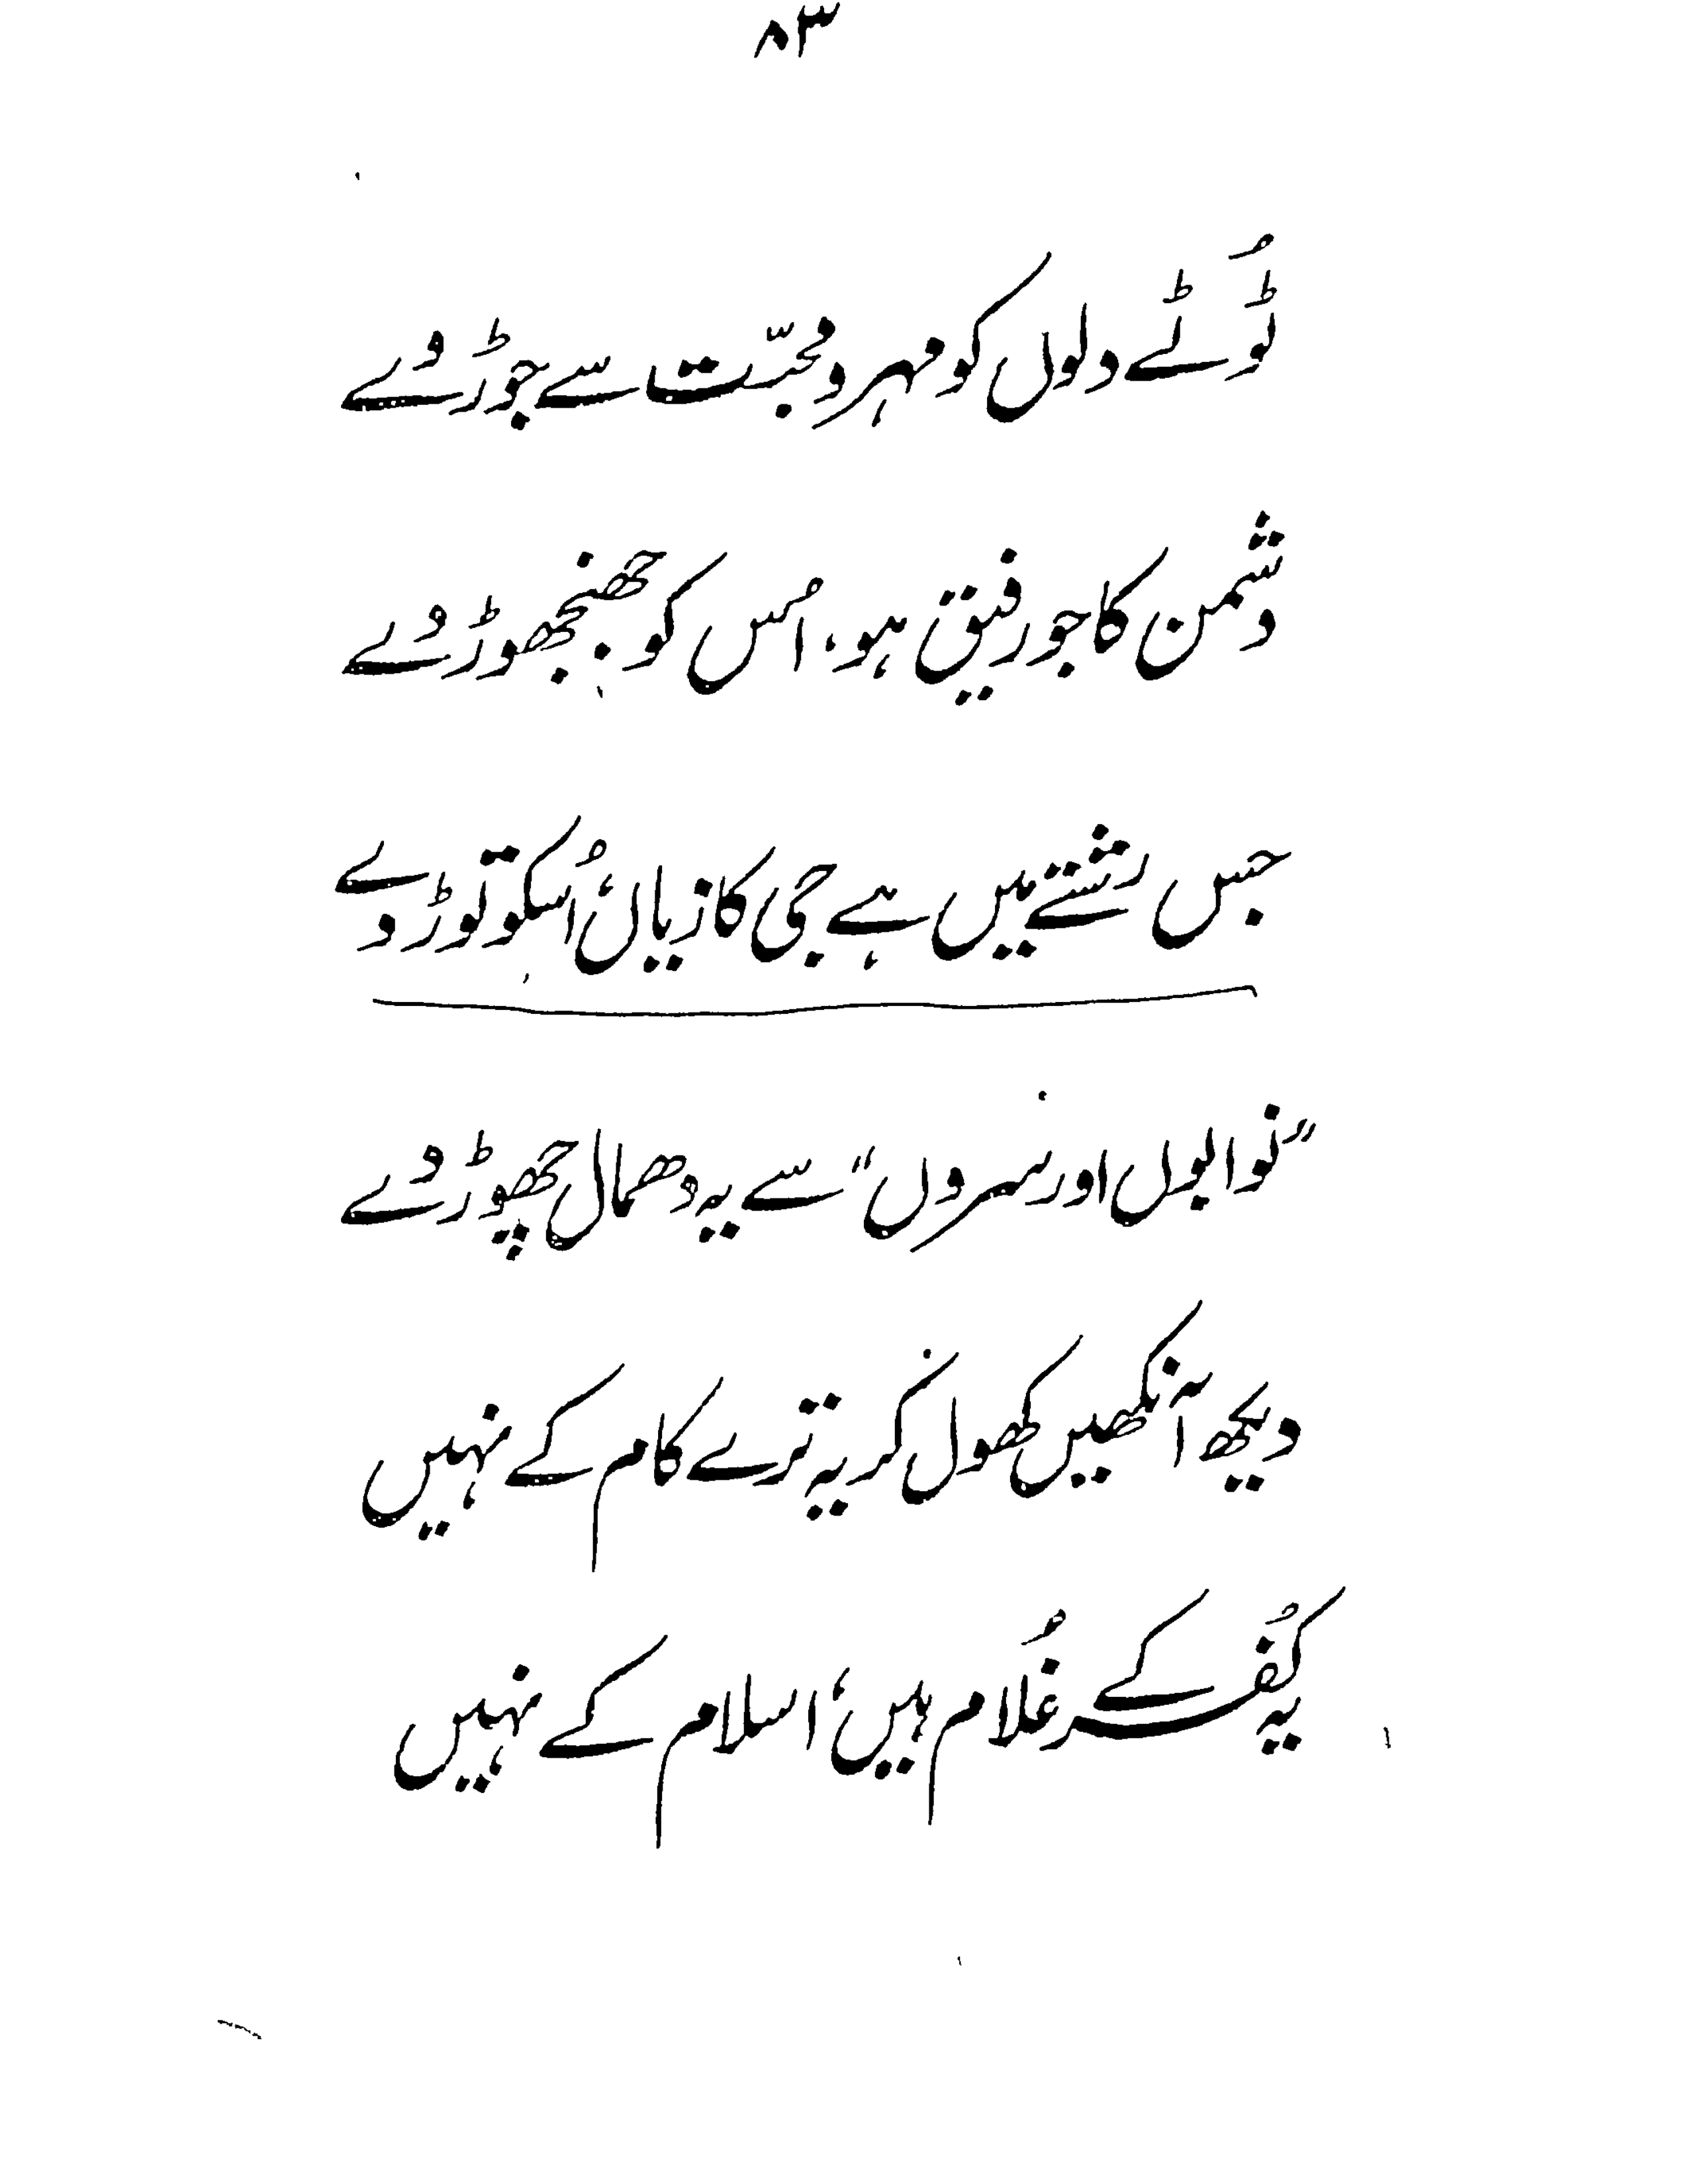 ۸۳
ٹُوٹے دلوں کو مہر و محبّت سے جوڑ دے
دشمن کا جو رفیق ہو، اُس کو جھنجھوڑ دے
جس رشتے میں ہے جی کا زیاں، اُسکو توڑ دے
”نوابوں اور سروں“ سے یہ دھمال چھوڑ دے
دیکھ آنکھیں کھول کر یہ ترے کام کے نہیں
یہ کُفر کے غُلام ہیں، اسلام کے نہیں